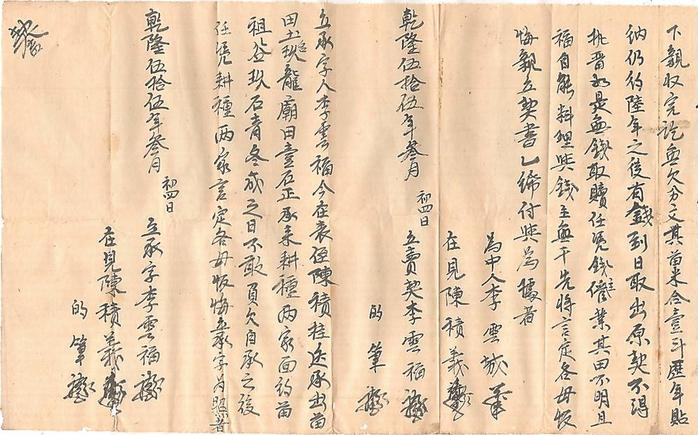 下親收完訖無欠分文其苗米合壹斗歷年貼
納仍約陸年之後有錢到日取出原契不得
執吝如是無錢取贖任凭錢主管業其田不明且
福自能料理與錢主無干先將言定各毋反
悔親立契書乙紙付與為據者
為中人李雲城
在見陳積義
乾隆伍拾伍年叁月初四日立賣契李雲福
的筆
立承字人李雲福今在表侄陳積桂邊承出苗
田土龍廟田壹石正承來耕種兩家面約苗
租谷玖石青冬成之日不敢負欠自承之後
任凭耕種兩家言定各毋反悔立承字為照者
乾隆伍拾伍年叁月初四日立承字李雲福
在見陳積義
的筆